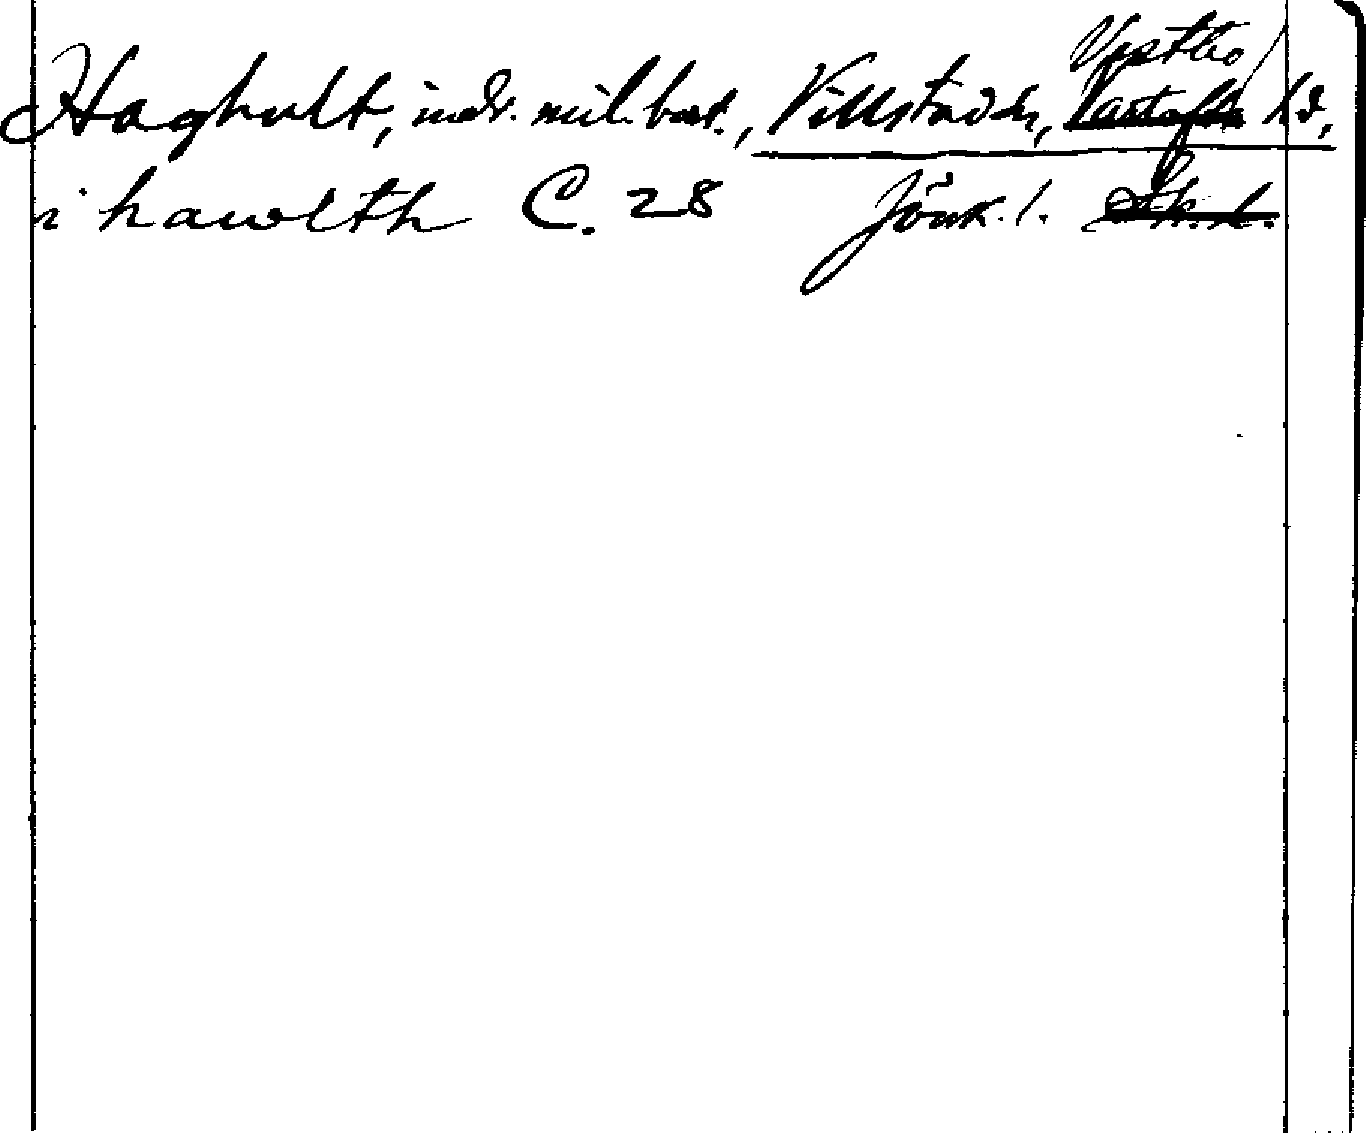 Västbo
Haghult, indr. mil. bost., Villstads sn, Vartofta hd,
i hawlth C. 28 Jönk. l. Sk. l.